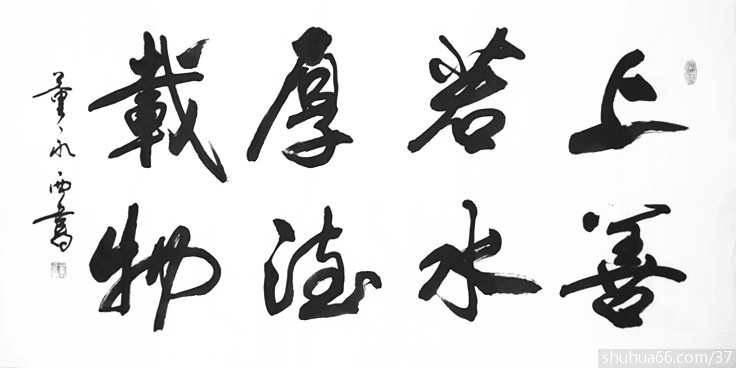 上善
若水
厚德
載物
董永西
shuhua66.com/37